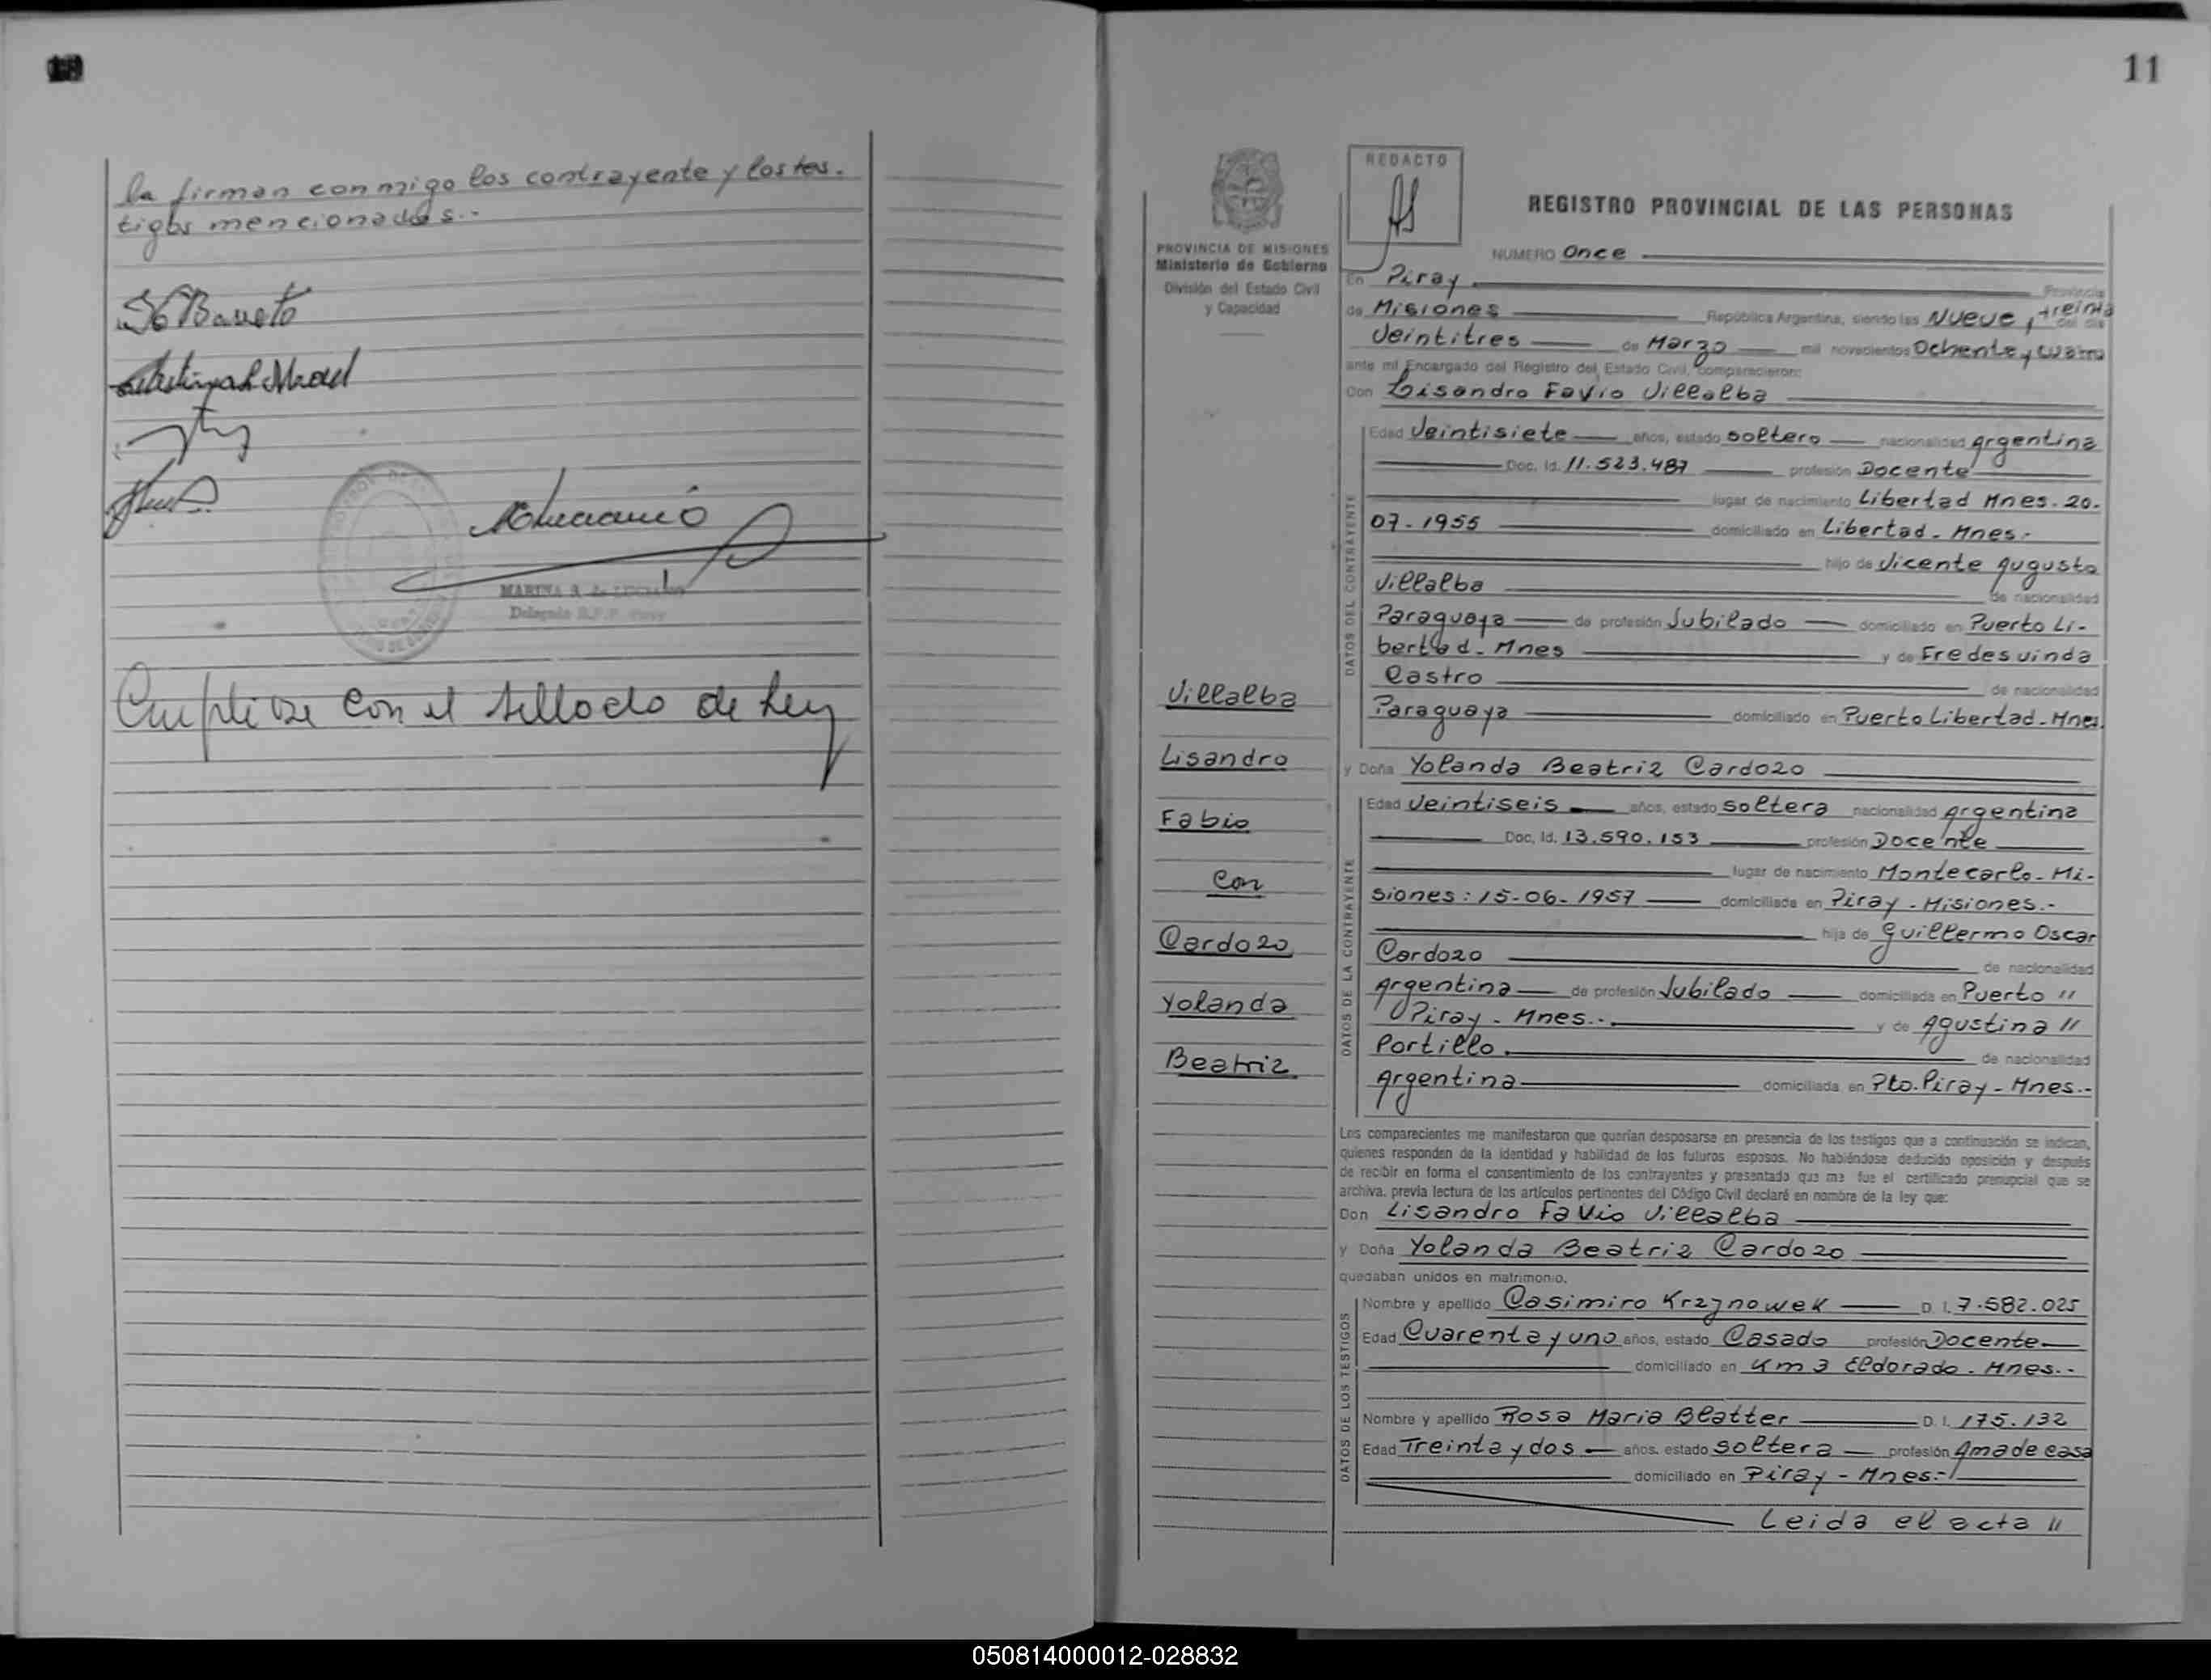 la firman conmigo los contrayente y los tes.
tigos mencionados.-
MARINA
Delegada R.P.P.
Cumpliose con el sellado de Ley
11
PROVINCIA DE MISIONES
Ministerio de Gobierno
División del Estado Civil
y Capacidad
REDACTO
REGISTRO PROVINCIAL DE LAS PERSONAS
NUMERO Once
En Piray Provincia
de Misiones República Argentina, siendo las Nueve y treinta del día
Veintitres de Marzo mil novecientos Ochenta y cuatro
ante mi Encargado del Registro del Estado Civil, comparecieron:
Don Lisandro Favio Villalba
DATOS DEL CONTRAYENTE
Edad Veintisiete años, estado soltero nacionalidad Argentina
Doc. Id. 11.523.487 profesión Docente
lugar de nacimiento Libertad Mnes. 20.
07-1955 domiciliado en Libertad - Mnes.-
hijo de Vicente Augusto
Villalba de nacionalidad
Paraguaya de profesión Jubilado domiciliado en Puerto Li-
bertad - Mnes y de Fredesvinda
Castro de nacionalidad
Paraguaya domiciliado en Puerto Libertad - Mnes.
y Doña Yolanda Beatriz Cardozo
DATOS DE LA CONTRAYENTE
Edad Veintiseis años, estado soltera nacionalidad Argentina
Doc. Id. 13.590.153 profesión Docente
lugar de nacimiento Montecarlo - Mi-
siones: 15-06-1957 domiciliada en Piray - Misiones.-
hija de Guillermo Oscar
Cardozo de nacionalidad
Argentina de profesión Jubilado domiciliada en Puerto "
Piray - Mnes.- y de Agustina "
Portillo. de nacionalidad
Argentina domiciliada en Pto. Piray - Mnes.-
Villalba
Lisandro
Fabio
Con
Cardozo
Yolanda
Beatriz
Los comparecientes me manifestaron que querían desposarse en presencia de los testigos que a continuación se indican,
quienes responden de la identidad y habilidad de los futuros esposos. No habiéndose deducido oposición y después
de recibir en forma el consentimiento de los contrayentes y presentado que me fue el certificado prenupcial que se
archiva, previa lectura de los artículos pertinentes del Código Civil declaré en nombre de la ley que:
Don Lisandro Favio Villalba
y Doña Yolanda Beatriz Cardozo
quedaban unidos en matrimonio.
DATOS DE LOS TESTIGOS
Nombre y apellido Casimiro Krzynowek D. I. 7.582.025
Edad Cuarenta y uno años, estado Casado profesión Docente
domiciliado en Km 3 Eldorado - Mnes.-
Nombre y apellido Rosa Maria Blatter D. I. 175.132
Edad Treinta y dos años, estado soltera profesión Ama de casa
domiciliado en Piray - Mnes.-
Leida el acta "
050814000012-028832